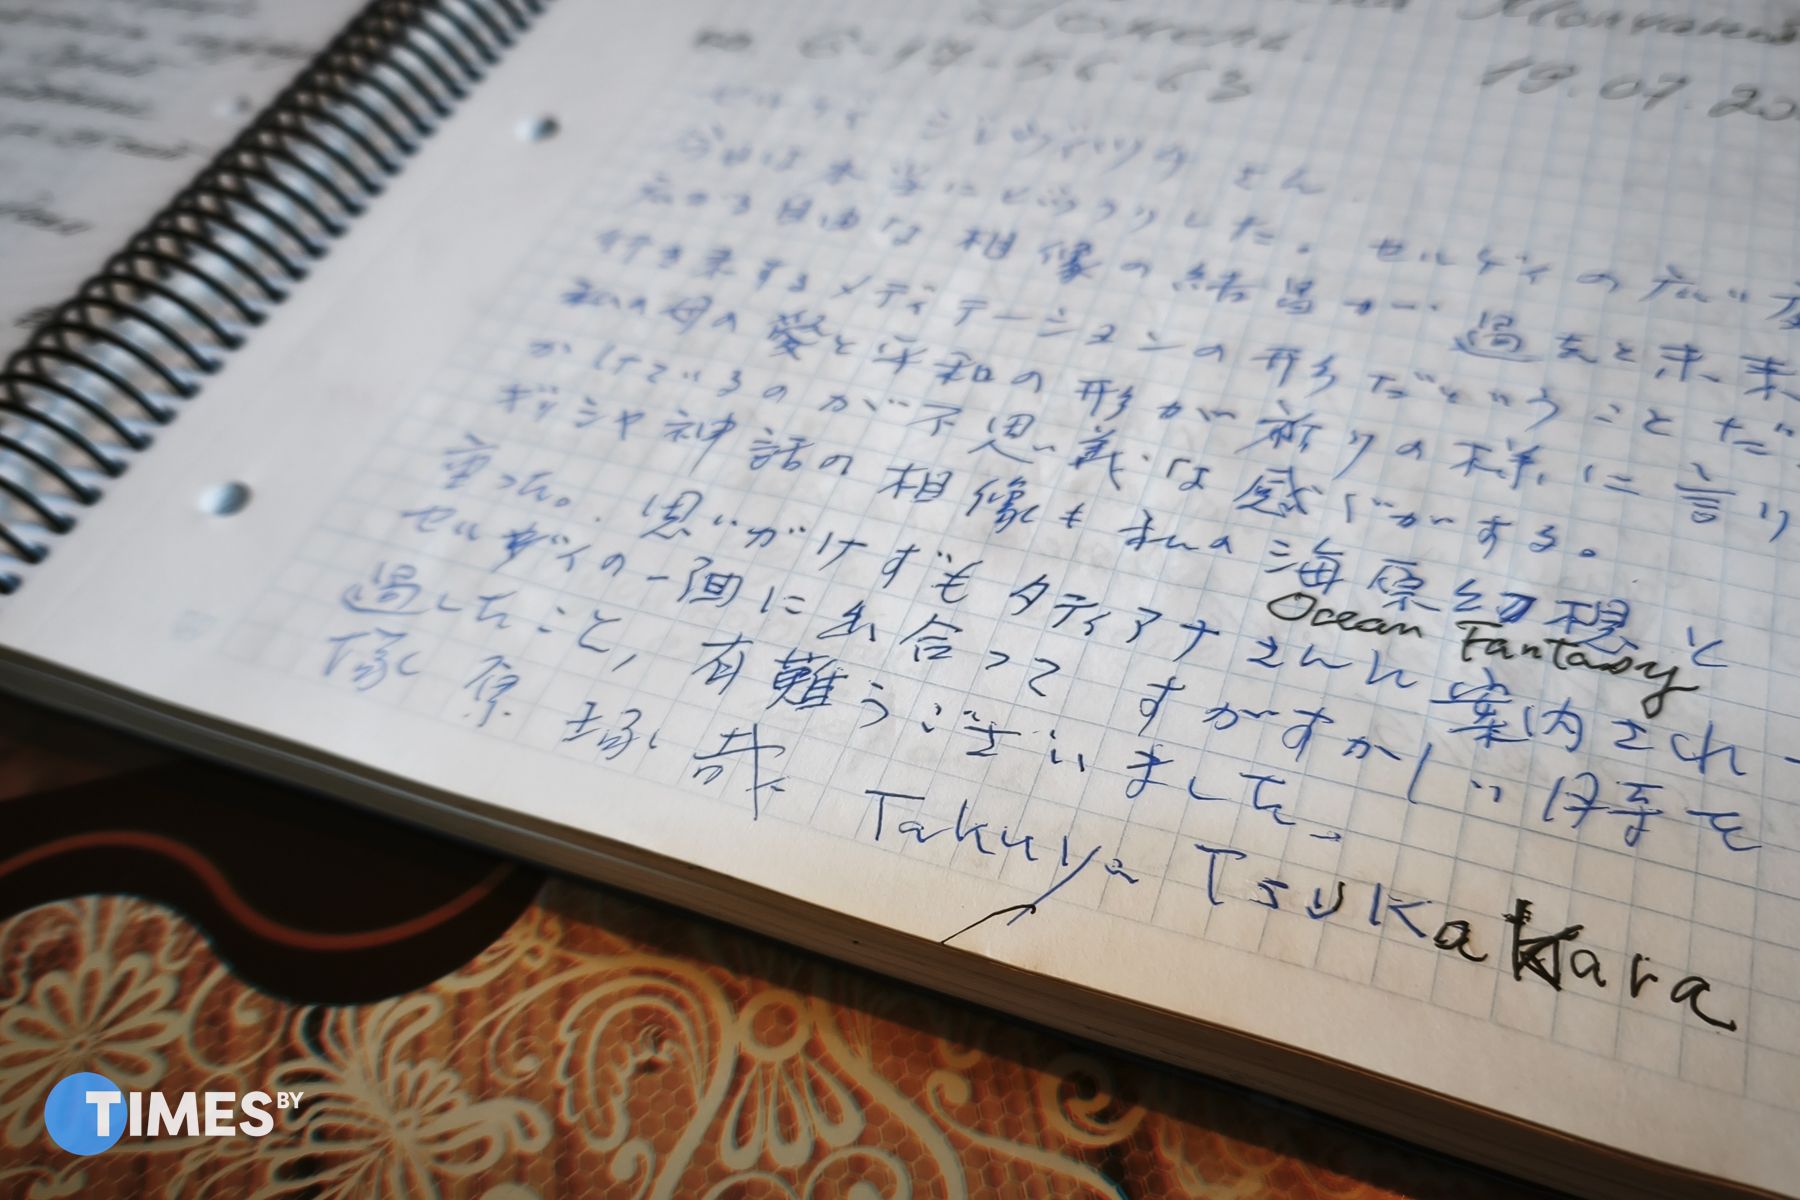 6-14-56-63
19.07.20
セルゲイ さん
今日は本当にびっくりした。セルゲイの広い
広がる自由な相像の結晶が 過去と未来
行き来するメディテーションの形だということだ
私の母の愛と平和の形が祈りの様に語り
かけているのが不思議な感じがする。
ギリシャ神話の相像も私の海原幻想と
Ocean Fantasy
重った。思いがけずもタティアナさんに案内され
セルゲイの一画に出合って すがすがしい日等を
過したこと、有難うございました。
塚原 琢哉 Takuya Tsukahara
TIMES BY